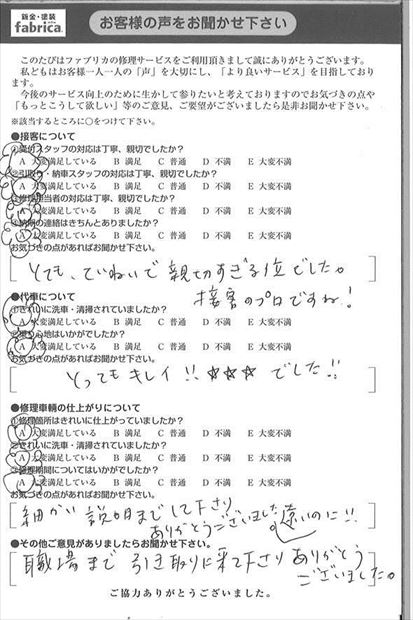 鈑金・塗装
fabrica.
お客様の声をお聞かせ下さい
このたびはファブリカの修理サービスをご利用頂きまして誠にありがとうございます。
私どもはお客様一人一人の「声」を大切にし、「より良いサービス」を目指しており
ます。
今後のサービス向上のために生かして参りたいと考えておりますのでお気づきの点や
「もっとこうして欲しい」等のご意見、ご要望がございましたら是非お聞かせ下さい。
※該当するところに○をつけて下さい。
●接客について
①受付スタッフの対応は丁寧、親切でしたか?
A 大変満足している B 満足 C 普通 D 不満 E 大変不満
②引取り・納車スタッフの対応は丁寧、親切でしたか?
A 大変満足している B 満足 C 普通 D 不満 E 大変不満
③修理担当者の対応は丁寧、親切でしたか?
A 大変満足している B 満足 C 普通 D 不満 E 大変不満
④納期の連絡はきちんとありましたか?
A 大変満足している B 満足 C 普通 D 不満 E 大変不満
お気づきの点があればお聞かせ下さい。
とても、ていねいで親切すぎる位でした。
接客のプロですね!
●代車について
①きれいに洗車・清掃されていましたか?
A 大変満足している B 満足 C 普通 D 不満 E 大変不満
②乗り心地はいかがでしたか?
A 大変満足している B 満足 C 普通 D 不満 E 大変不満
お気づきの点があればお聞かせ下さい。
とってもキレイ!!☆☆☆でした!!
●修理車輌の仕上がりについて
①修理箇所はきれいに仕上がっていましたか?
A 大変満足している B 満足 C 普通 D 不満 E 大変不満
②きれいに洗車・清掃されていましたか?
A 大変満足している B 満足 C 普通 D 不満 E 大変不満
③修理期間についてはいかがでしたか?
A 大変満足している B 満足 C 普通 D 不満 E 大変不満
お気づきの点があればお聞かせ下さい。
細かい説明までして下さり
ありがとうございました。遠いのに!!
●その他ご意見がありましたらお聞かせ下さい。
職場まで引き取りに来て下さりありがとう
ございました。
ご協力ありがとうございました。